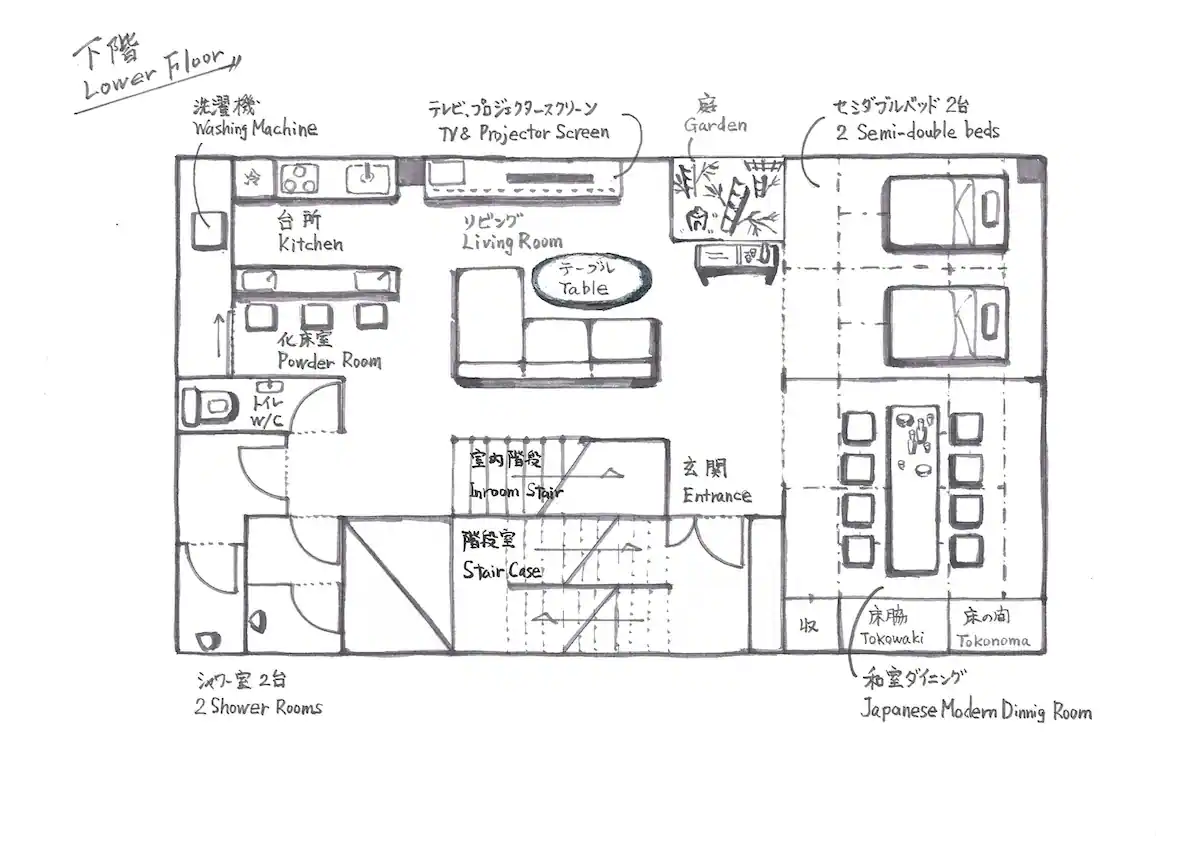 下階
Lower Floor
洗濯機
Washing Machine
テレビ、プロジェクタースクリーン
TV & Projector Screen
庭
Garden
セミダブルベッド 2台
2 Semi-double beds
冷
台所
Kitchen
リビング
Living Room
テーブル
Table
化床室
Powder Room
トイレ
W/C
室内階段
Inroom Stair
玄関
Entrance
階段室
Stair Case
収
床脇
Tokowaki
床の間
Tokonoma
シャワー室 2台
2 Shower Rooms
和室ダイニング
Japanese Modern Dinnig Room